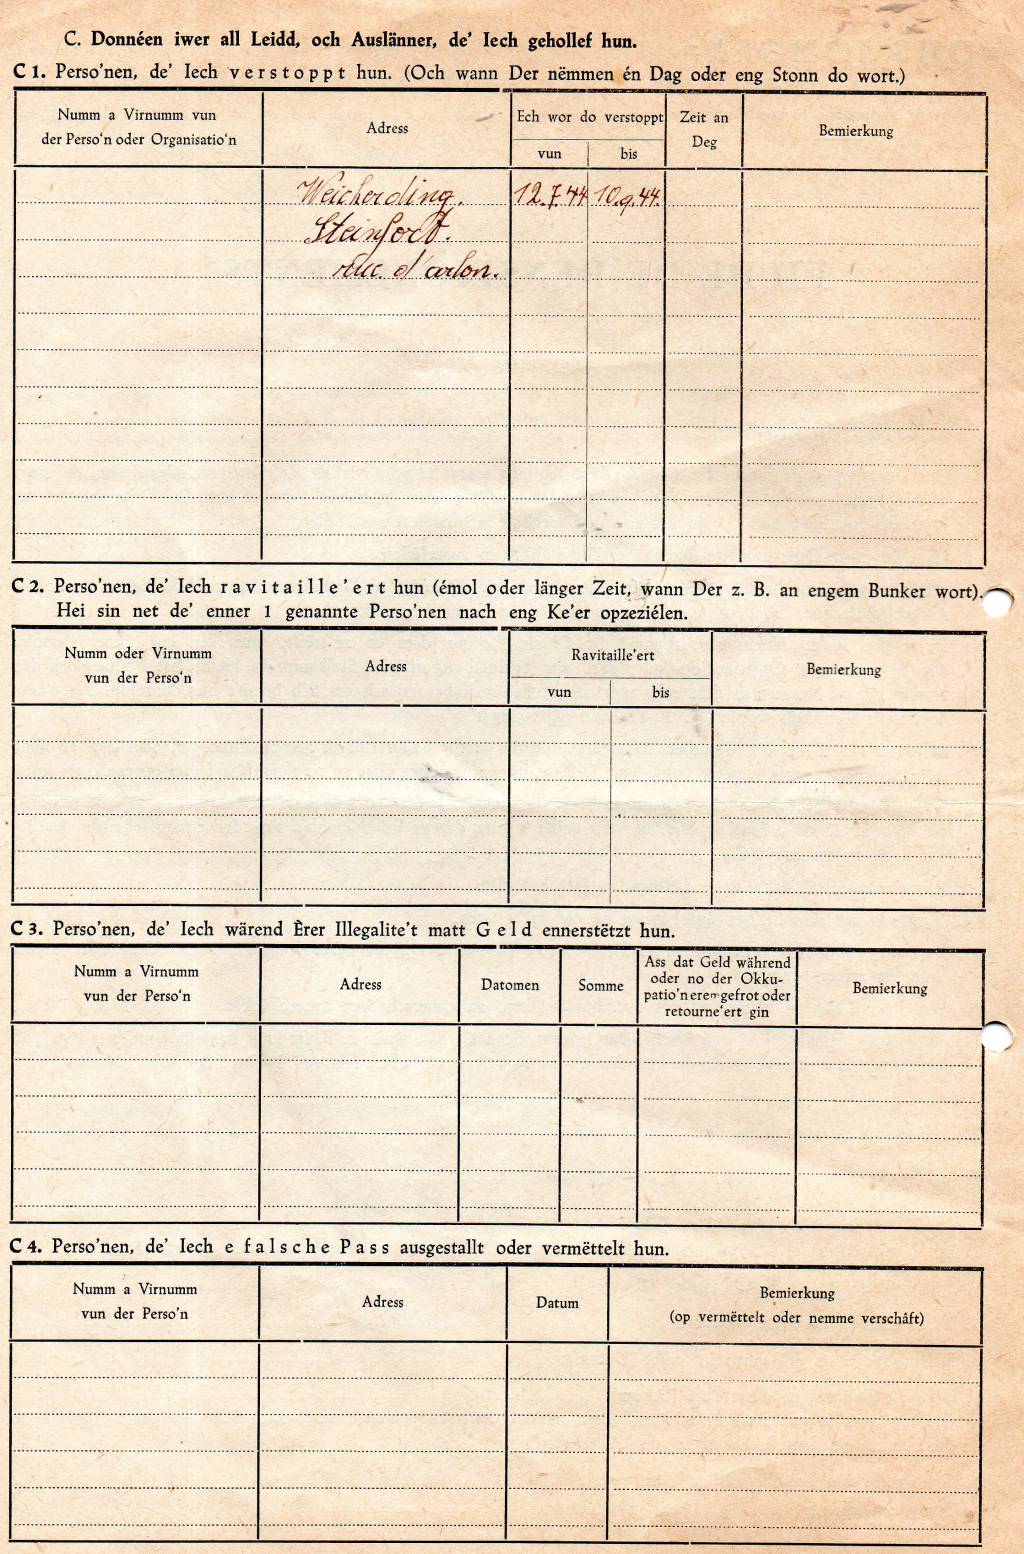 C. Donnéen iwer all Leidd, och Auslänner, de' Iech gehollef hun.
C 1. Perso'nen, de' Iech verstoppt hun. (Och wann Der nëmmen én Dag oder eng Stonn do wort.)
Numm a Virnumm vun
der Perso'n oder Organisatio'n
Adress
Ech wor do verstoppt
vun
bis
Zeit an
Deg
Bemierkung
Weicherding. 12.7.44 10.9.44.
Steinfort.
rue d'arlon.
C 2. Perso'nen, de' Iech ravitaille'ert hun (émol oder länger Zeit, wann Der z. B. an engem Bunker wort).
Hei sin net de' enner 1 genannte Perso'nen nach eng Ke'er opzeziélen.
Numm oder Virnumm
vun der Perso'n
Adress
Ravitaille'ert
vun
bis
Bemierkung
C 3. Perso'nen, de' Iech wärend Èrer Illegalite't matt Geld ennerstëtzt hun.
Numm a Virnumm
vun der Perso'n
Adress
Datomen
Somme
Ass dat Geld während
oder no der Okku-
patio'n eremgefrot oder
retourne'ert gin
Bemierkung
C 4. Perso'nen, de' Iech e falsche Pass ausgestallt oder vermëttelt hun.
Numm a Virnumm
vun der Perso'n
Adress
Datum
Bemierkung
(op vermëttelt oder nemme verschâft)